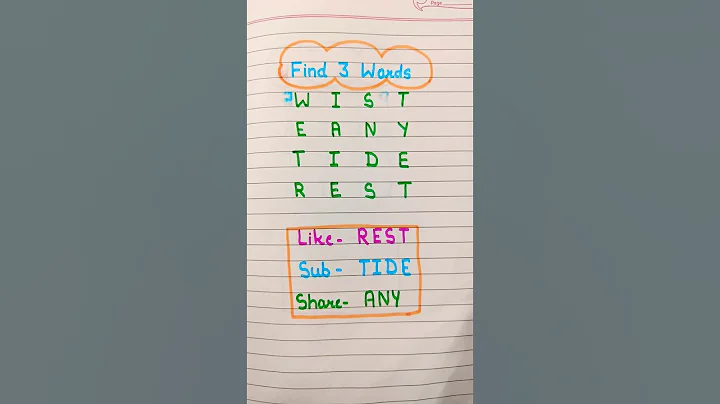 Page
Find 3 Words
W I S T
E A N Y
T I D E
R E S T
Like- REST
Sub - TIDE
Share- ANY